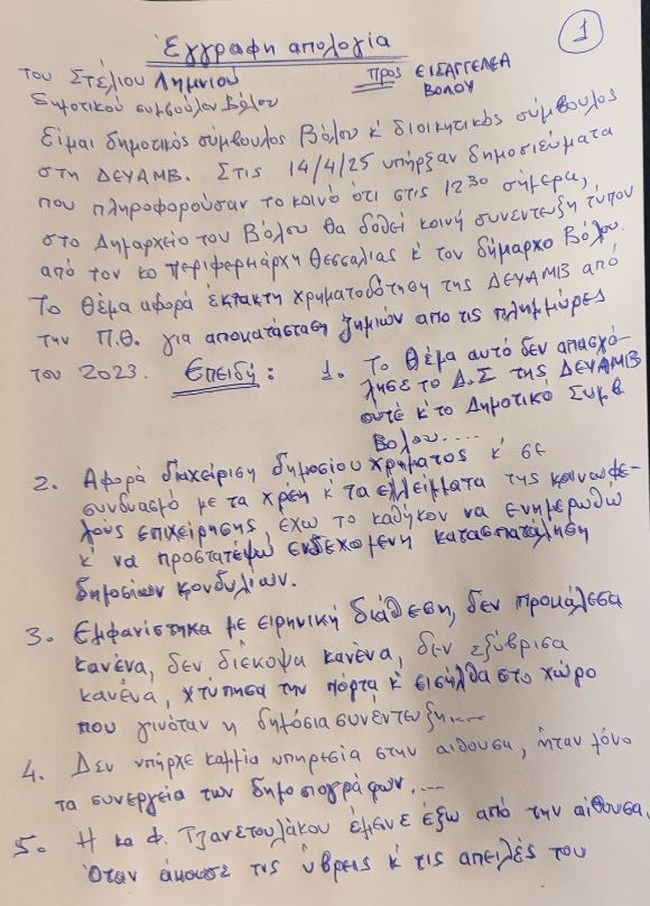 1
Έγγραφη απολογία
του Στέλιου Λημνιού προς ΕΙΣΑΓΓΕΛΕΑ
δημοτικού συμβούλου Βόλου ΒΟΛΟΥ
Είμαι δημοτικός σύμβουλος Βόλου κ' διοικητικός σύμβουλος
στη ΔΕΥΑΜΒ. Στις 14/4/25 υπήρξαν δημοσιεύματα
που πληροφορούσαν το κοινό ότι στις 12³⁰ σήμερα,
στο Δημαρχείο του Βόλου θα δοθεί κοινή συνέντευξη τύπου
από τον κο Περιφερειάρχη Θεσσαλίας κ' τον δήμαρχο Βόλου.
Το θέμα αφορά έκτακτη χρηματοδότηση της ΔΕΥΑΜΒ από
την Π.Θ. για αποκατάσταση ζημιών απο τις πλημμύρες
του 2023. Επειδή: 1. Το θέμα αυτό δεν απασχό-
λησε το Δ.Σ της ΔΕΥΑΜΒ
ούτε κ' το Δημοτικό Συμβ.
Βολου....
2. Αφορά διαχείριση δημοσίου χρηματος κ' σε
συνδυασμό με τα χρέη κ' τα ελλείμματα της κοινωφε-
λούς επιχείρησης, έχω το καθήκον να ενημερωθώ
κ' να προστατέψω ενδεχωμενη κατασπατάληση
δημοσίων κονδυλίων.
3. Εμφανίστηκα με ειρηνική διάθεση, δεν προκάλεσα
κανένα, δεν διέκοψα κανένα, δεν εξύβρισα
κανένα, χτύπησα την πόρτα κ' εισήλθα στο χώρο
που γινόταν η δημόσια συνέντευξη....
4. Δεν υπήρχε καμμία υπηρεσία στην αιθουσα, ήταν μόνο
τα συνεργεία των δημοσιογράφων....
5. Η κα Φ. Τζανετουλάκου έμεινε έξω από την αίθουσα.
Όταν άκουσε τις ύβρεις κ' τις απειλές του